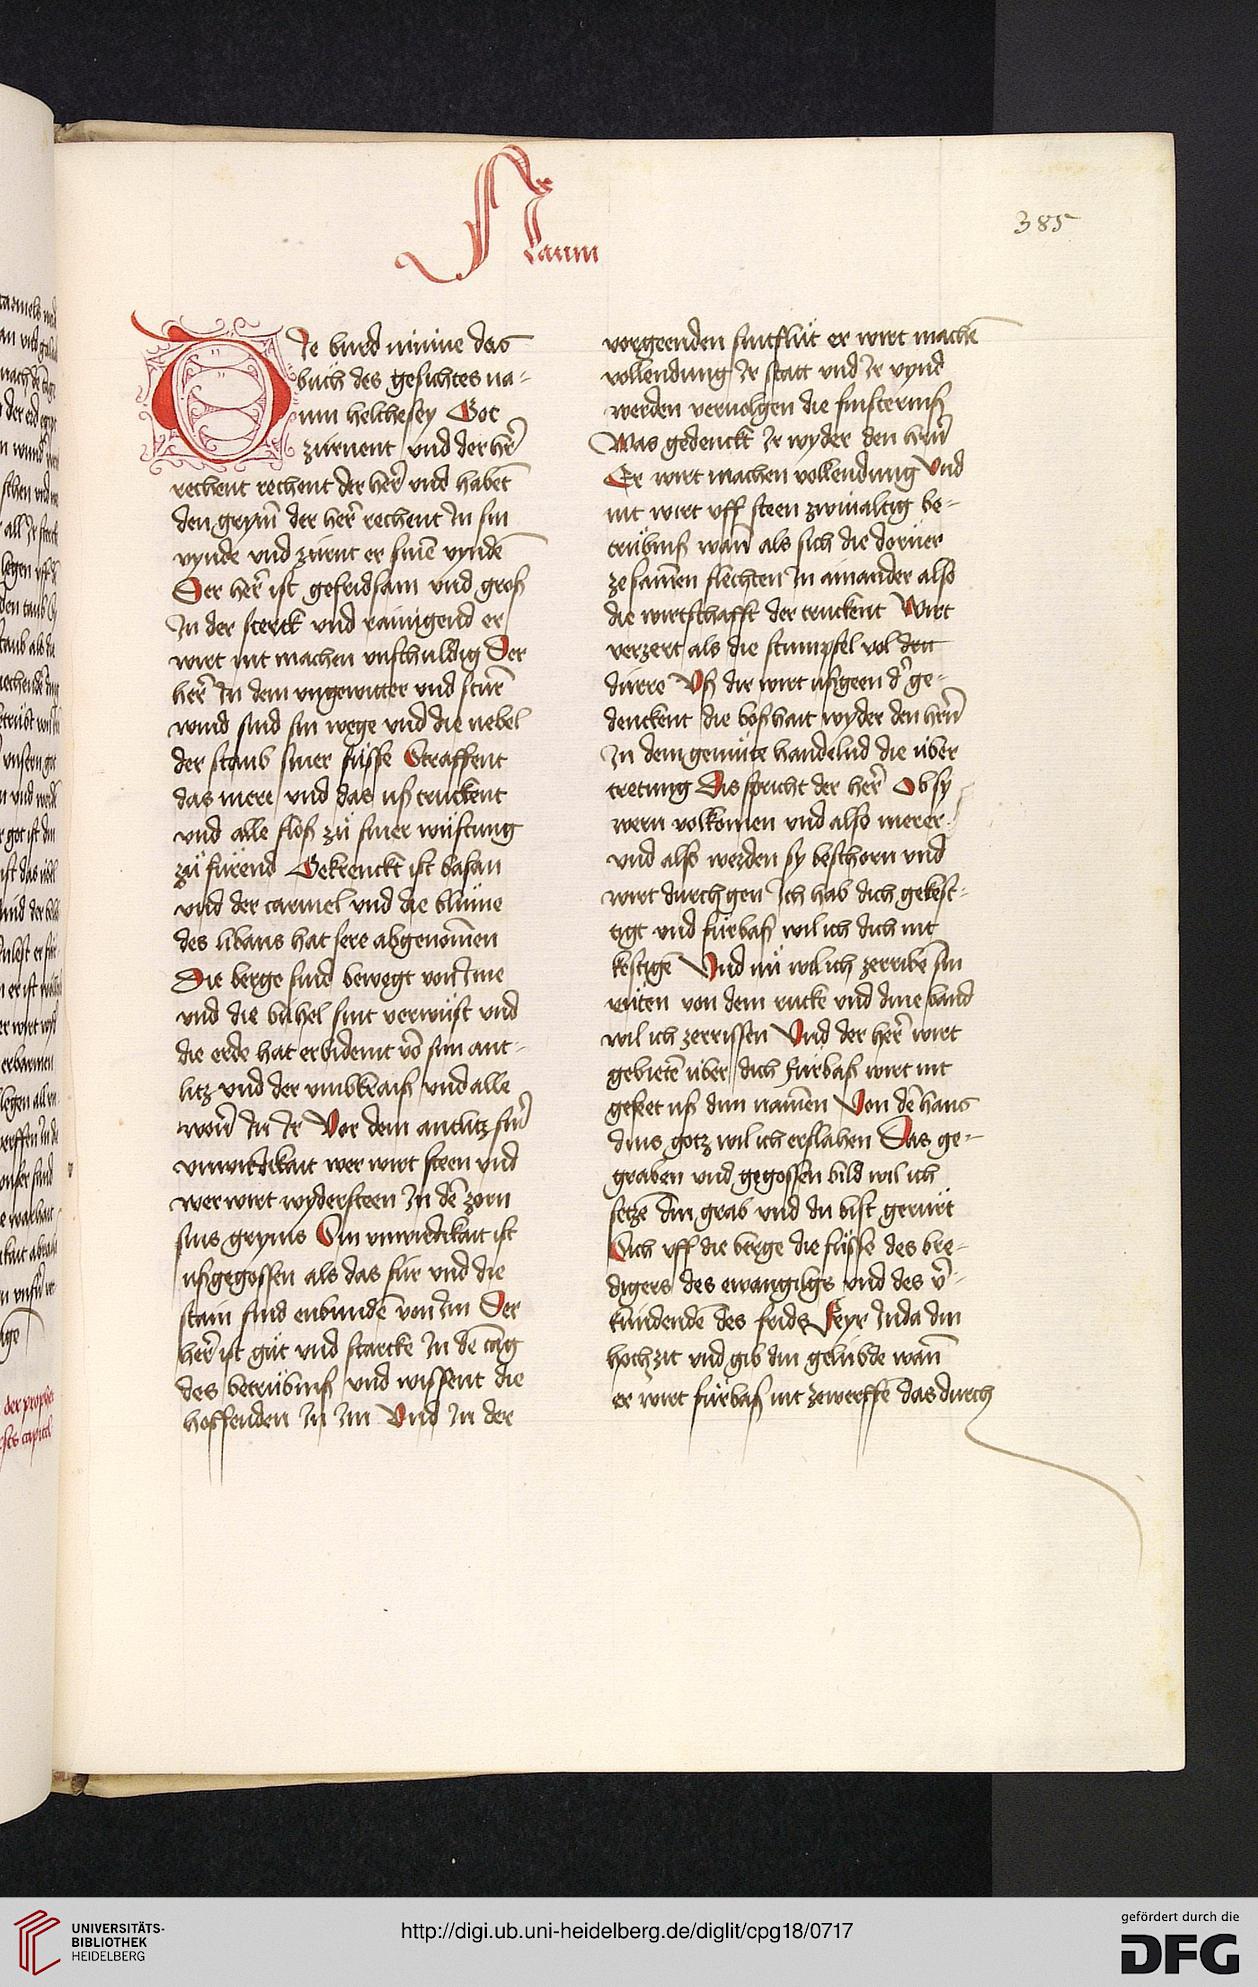 Naum
385
Die burd ninive das
buch des gesichtes na-
um helchesey Got
zurnent und der her̄
rechent rechent der her̄ und habent
den grym̄ der her̄ rechent In sin
vynde und zürnt er sinē vyndē
Der her̄ ist gefridsam und groß
In der sterck und rainigend er
wirt nit machen unschuldig Der
her̄ In dem ungewitter und stur̄
wind sind sin wege und die nebel
der staub siner füsse Straffent
das mere und das uß truckent
und alle floß zü siner wüstung
zü fürend Gekrenckt ist basan
und der carmel und die blume
des libans hat sere abgenom̄en
Die berge sind bewegt von Ime
und die bühel sint verwüst und
die erde hat erbidemt vō sim ant-
litz und der umbkraiß und alle
won̄ In Ir Vor dem antlitz sin̄
unwirdikait wer wirt steen und
wer wirt wydersteen In dē zorn
sins gryms Sin unwirdikait ist
ußgegossen als das für und die
stain sind enbunden von Im Der
her̄ ist güt und starcke In dē tag
des betrübniß und wissent die
hoffenden In Im Und In der
vorgeenden sintflüt er wirt machē
vollendung Ir statt und Ir vynd
werden vervolgen die finsterniß
Was gedenckt Ir wyder den hern̄
Er wirt machen vollendung Und
nit wirt uff steen zwivaltig be-
trübniß wan̄ als sich die dörner
zesam̄en flechten In ainander also
die wirtschafft der trinckent Wirt
verzert als die stumpfel vol
dürre Uß dir wirt ußgeen d' ge-
denckent die boßhait wyder den hern̄
In dem gemüte handelnd die über
tretung Dis spricht der her̄ Ob sy
wern volkomen und also merer
und also werden sy beschorn und
wirt durchgen Ich hab dich gekest-
igt und fürbaß wil ich dich nit
kestigē Und nü wil ich zerribē sin
rüten von dem rucke und dine band
wil ich zerrissen Und der her̄ wirt
gebietē über dich fürbaß wirt nit
geseet uß dim namen Von dē haus
dins gotz wil ich erslahen Das ge-
graben und gegossen bild wil ich
setzē din grab und du bist gerürt
Sich uff die berge die füsse des bre-
digers des ewangilgs und des v̄-
kündendē des frids Feyr Juda din
hochzit und gib din gelübde wan̄
er wirt fürbaß nit zewerffē das durch
UNIVERSITÄTS-
BIBLIOTHEK
HEIDELBERG
http://digi.ub.uni-heidelberg.de/diglit/cpg18/0717
gefördert durch die
DFG